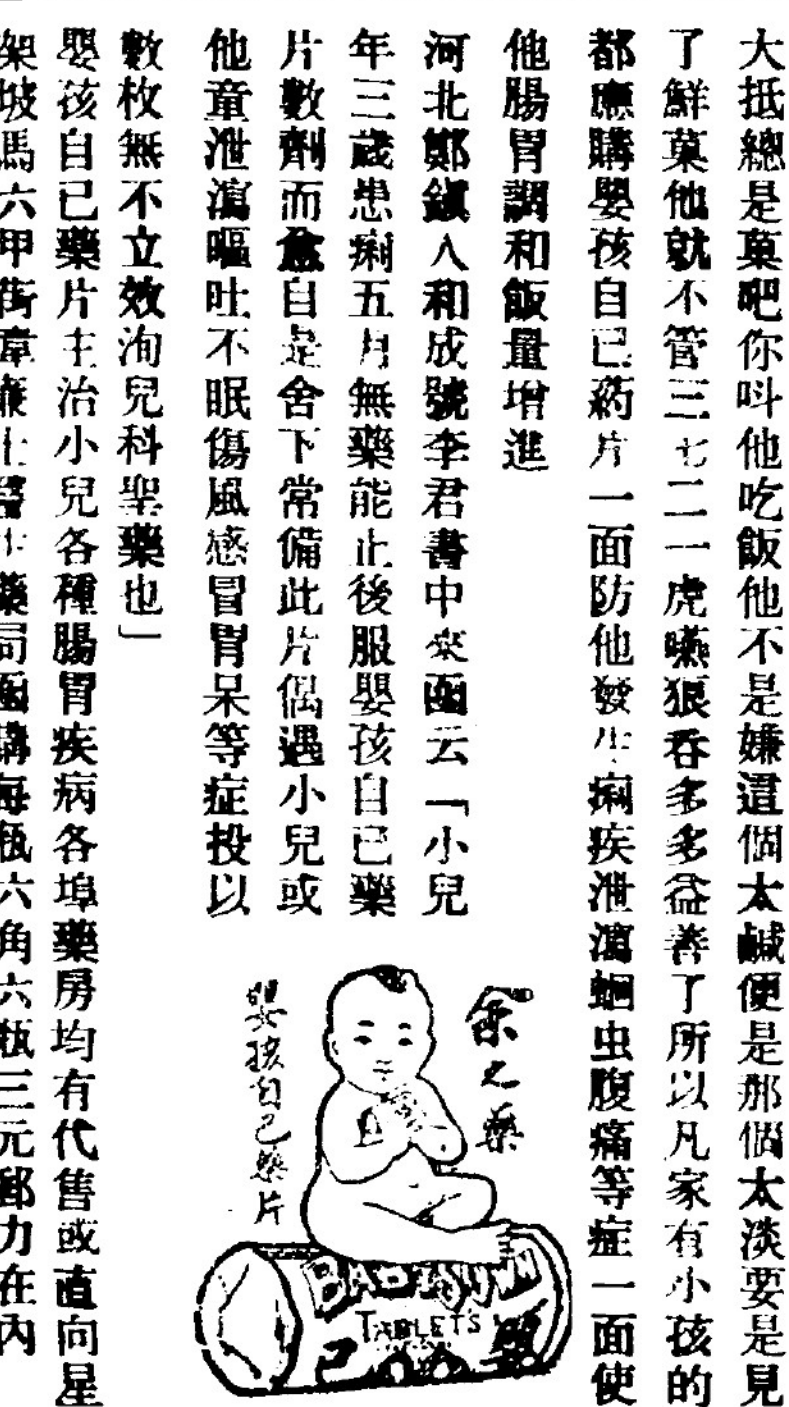 大抵總是菓吧你呌他吃飯他不是嫌這個太鹹便是那個太淡要是見
了鮮菓他就不管三七二一虎嚥狼吞多多益善了所以凡家有小孩的
都應購嬰孩自已葯片一面防他發生痢疾泄瀉蛔虫腹痛等症一面使
他腸胃調和飯量增進
河北鄭鎮人和成號李君書中來函云「小兒
年三歲患痢五月無藥能止後服嬰孩自已藥
片數劑而愈自是舍下常備此片偶遇小兒或
他童泄瀉嘔吐不眠傷風感冒胃呆等症投以
數枚無不立效洵兒科聖藥也」
嬰孩自已藥片主治小兒各種腸胃疾病各埠藥房均有代售或直向星
架坡馬六甲街韋廉士醫生藥局函購每瓶六角六瓶三元郵力在內
余之藥
嬰孩自己藥片
BABY'S OWN
TABLETS